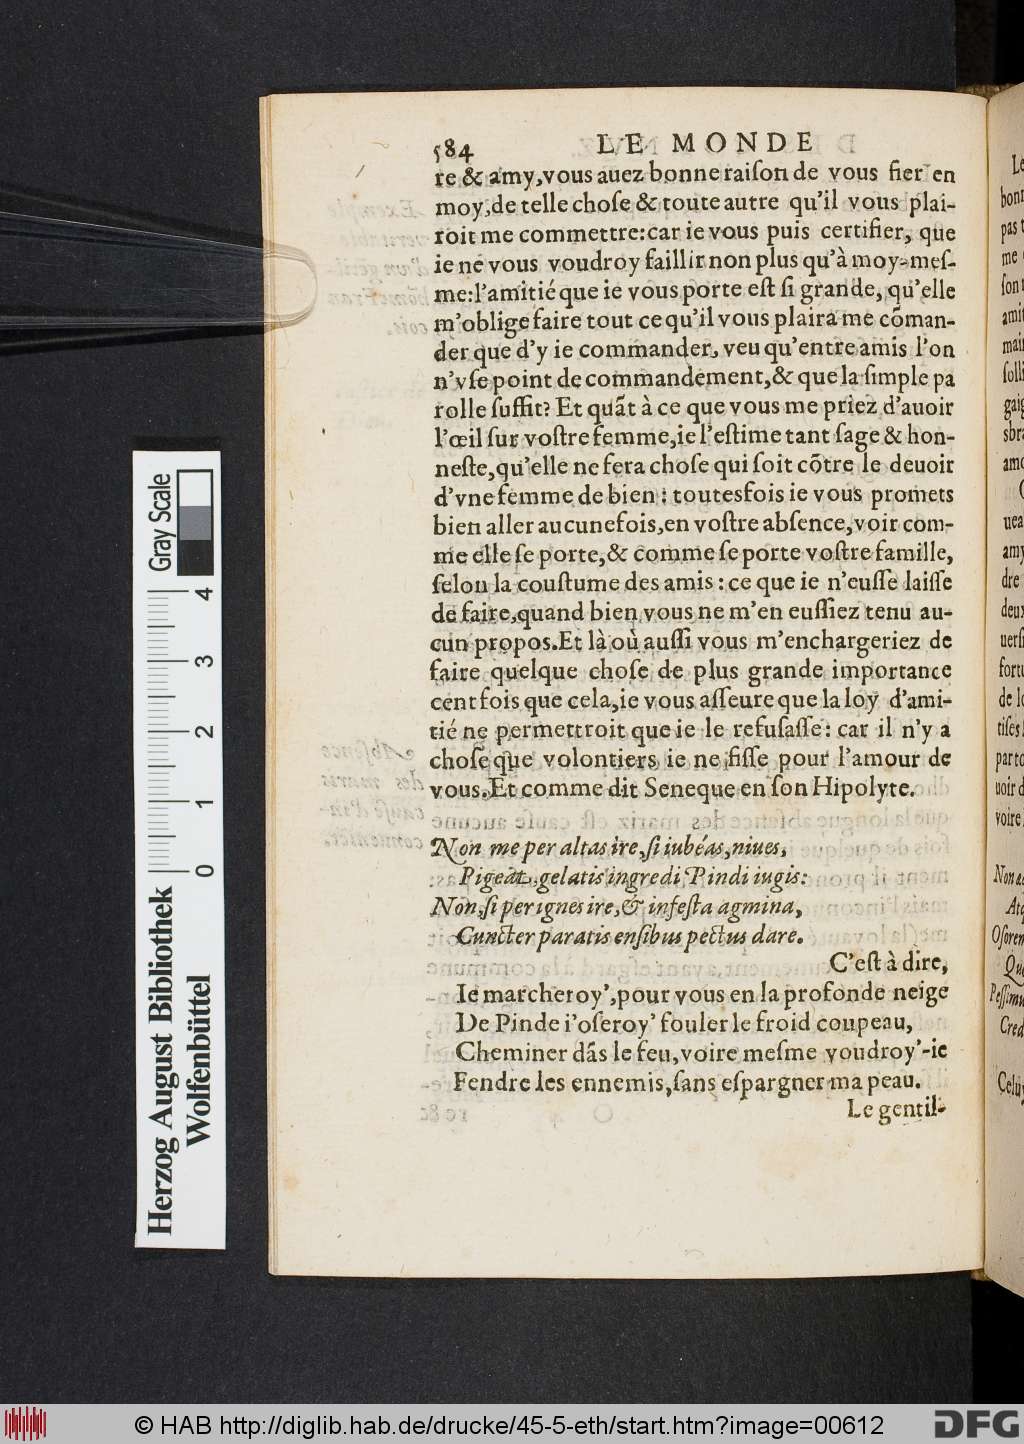 584 LE MONDE
re & amy,vous auez bonne raiſon de vous fier en
moy,de telle choſe & toute autre qu'il vous plai-
roit me commettre:car ie vous puis certifier, que
ie ne vous voudroy faillir non plus qu'à moy-meſ-
me:l'amitié que ie vous porte eſt ſi grande, qu'elle
m'oblige faire tout ce qu'il vous plaira me cõman-
der que d'y ie commander, veu qu'entre amis l'on
n'vſe point de commandement,& que la ſimple pa
rolle ſuffit? Et quãt à ce que vous me priez d'auoir
l'œil ſur voſtre femme,ie l'eſtime tant ſage & hon-
neſte,qu'elle ne fera choſe qui ſoit cõtre le deuoir
d'vne femme de bien : toutesfois ie vous promets
bien aller aucunefois,en voſtre abſence,voir com-
me elle ſe porte,& comme ſe porte voſtre famille,
ſelon la couſtume des amis : ce que ie n'euſſe laiſſe
de faire,quand bien vous ne m'en euſſiez tenu au-
cun propos.Et là où auſſi vous m'enchargeriez de
faire quelque choſe de plus grande importance
cent fois que cela,ie vous aſſeure que la loy d'ami-
tié ne permettroit que ie le refuſaſſe: car il n'y a
choſe que volontiers ie ne fiſſe pour l'amour de
vous.Et comme dit Seneque en ſon Hipolyte.
Non me per altas ire,ſi iubéas,niues,
Pigeat,gelatis ingredi Pindi iugis:
Non,ſi per ignes ire,& infeſta agmina,
Cuncter paratis enſibus pectus dare.
C'eſt à dire,
Ie marcheroy',pour vous en la profonde neige
De Pinde i'oſeroy' fouler le froid coupeau,
Cheminer dãs le feu,voire meſme voudroy'-ie
Fendre les ennemis,ſans eſpargner ma peau.
Le gentil-
Gray Scale
0 1 2 3 4
Herzog August Bibliothek
Wolfenbüttel
© HAB http://diglib.hab.de/drucke/45-5-eth/start.htm?image=00612
DFG